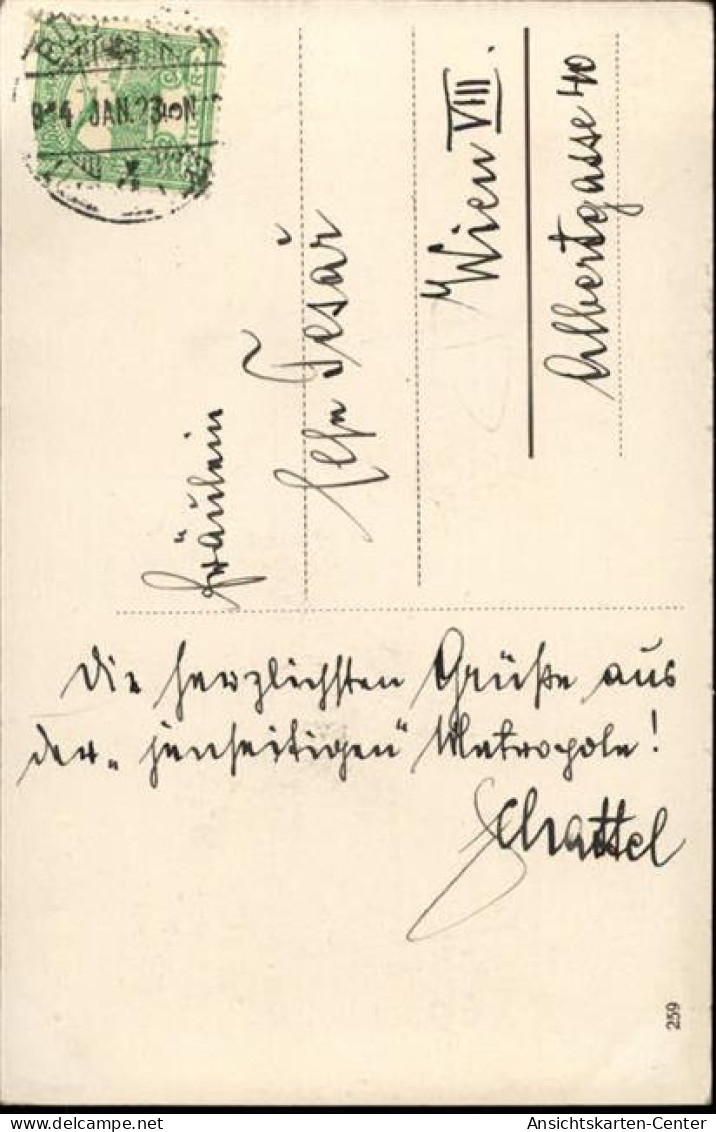 914 JAN. 23
Fräulein
Tesar
Wien VIII.
Albertgasse 40
Die herzlichsten Grüße aus
der „jenseitigen“ Metropole!
Schattel
259
Ansichtskarten-Center